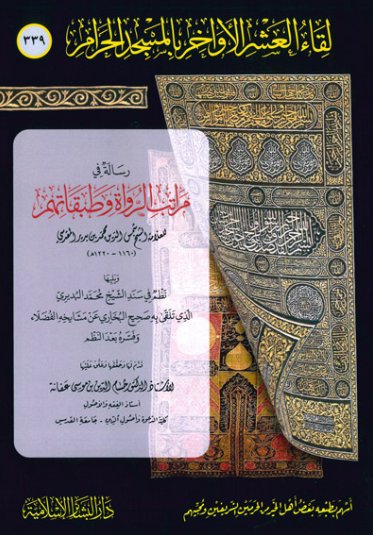 لقاء العشر الأواخر بالمسجد الحرام
٣٣٩
رسالة في
مراتب الرواة وطبقاتهم
للعلامة الشيخ شمس الدين محمد بن بدير المقدسي
(١١٦٠ - ١٢٢٠هـ)
ويليها
نظم في سند الشيخ محمد البديري
الذي تلقى به صحيح البخاري عن مشايخه الفضلاء
وفسره بعد النظم
قدم لها وحققها وعلق عليها
الأستاذ الدكتور حسام الدين بن موسى عفانة
أستاذ الفقه والأصول
كلية الدعوة وأصول الدين - جامعة القدس
أسهم بطبعه بعض أهل الخير من الحرمين الشريفين ومحبيهم
دار البشائر الإسلامية